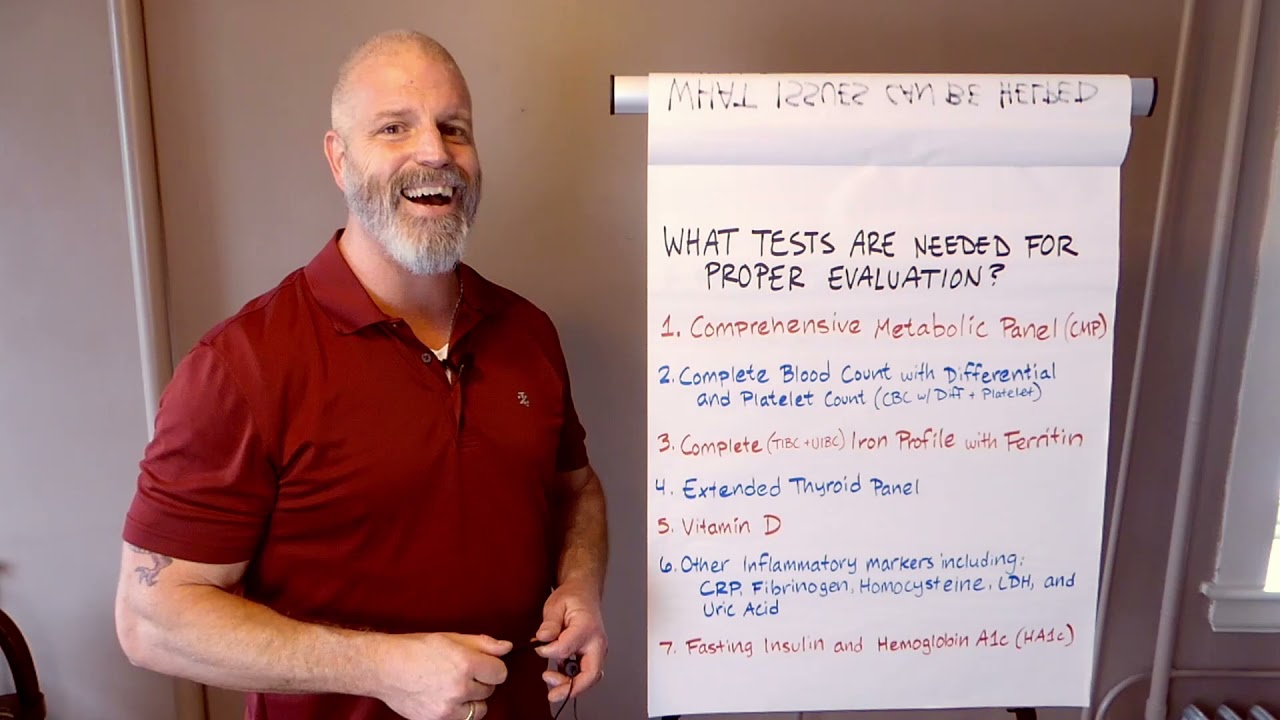 WHAT ISSUES CAN BE HELPED
WHAT TESTS ARE NEEDED FOR
PROPER EVALUATION?
1. Comprehensive Metabolic Panel (CMP)
2. Complete Blood Count with Differential
and Platelet Count (CBC w/ Diff + Platelet)
3. Complete (TIBC + UIBC) Iron Profile with Ferritin
4. Extended Thyroid Panel
5. Vitamin D
6. Other Inflammatory markers including:
CRP, Fibrinogen, Homocysteine, LDH, and
Uric Acid
7. Fasting Insulin and Hemoglobin A1c (HA1c)